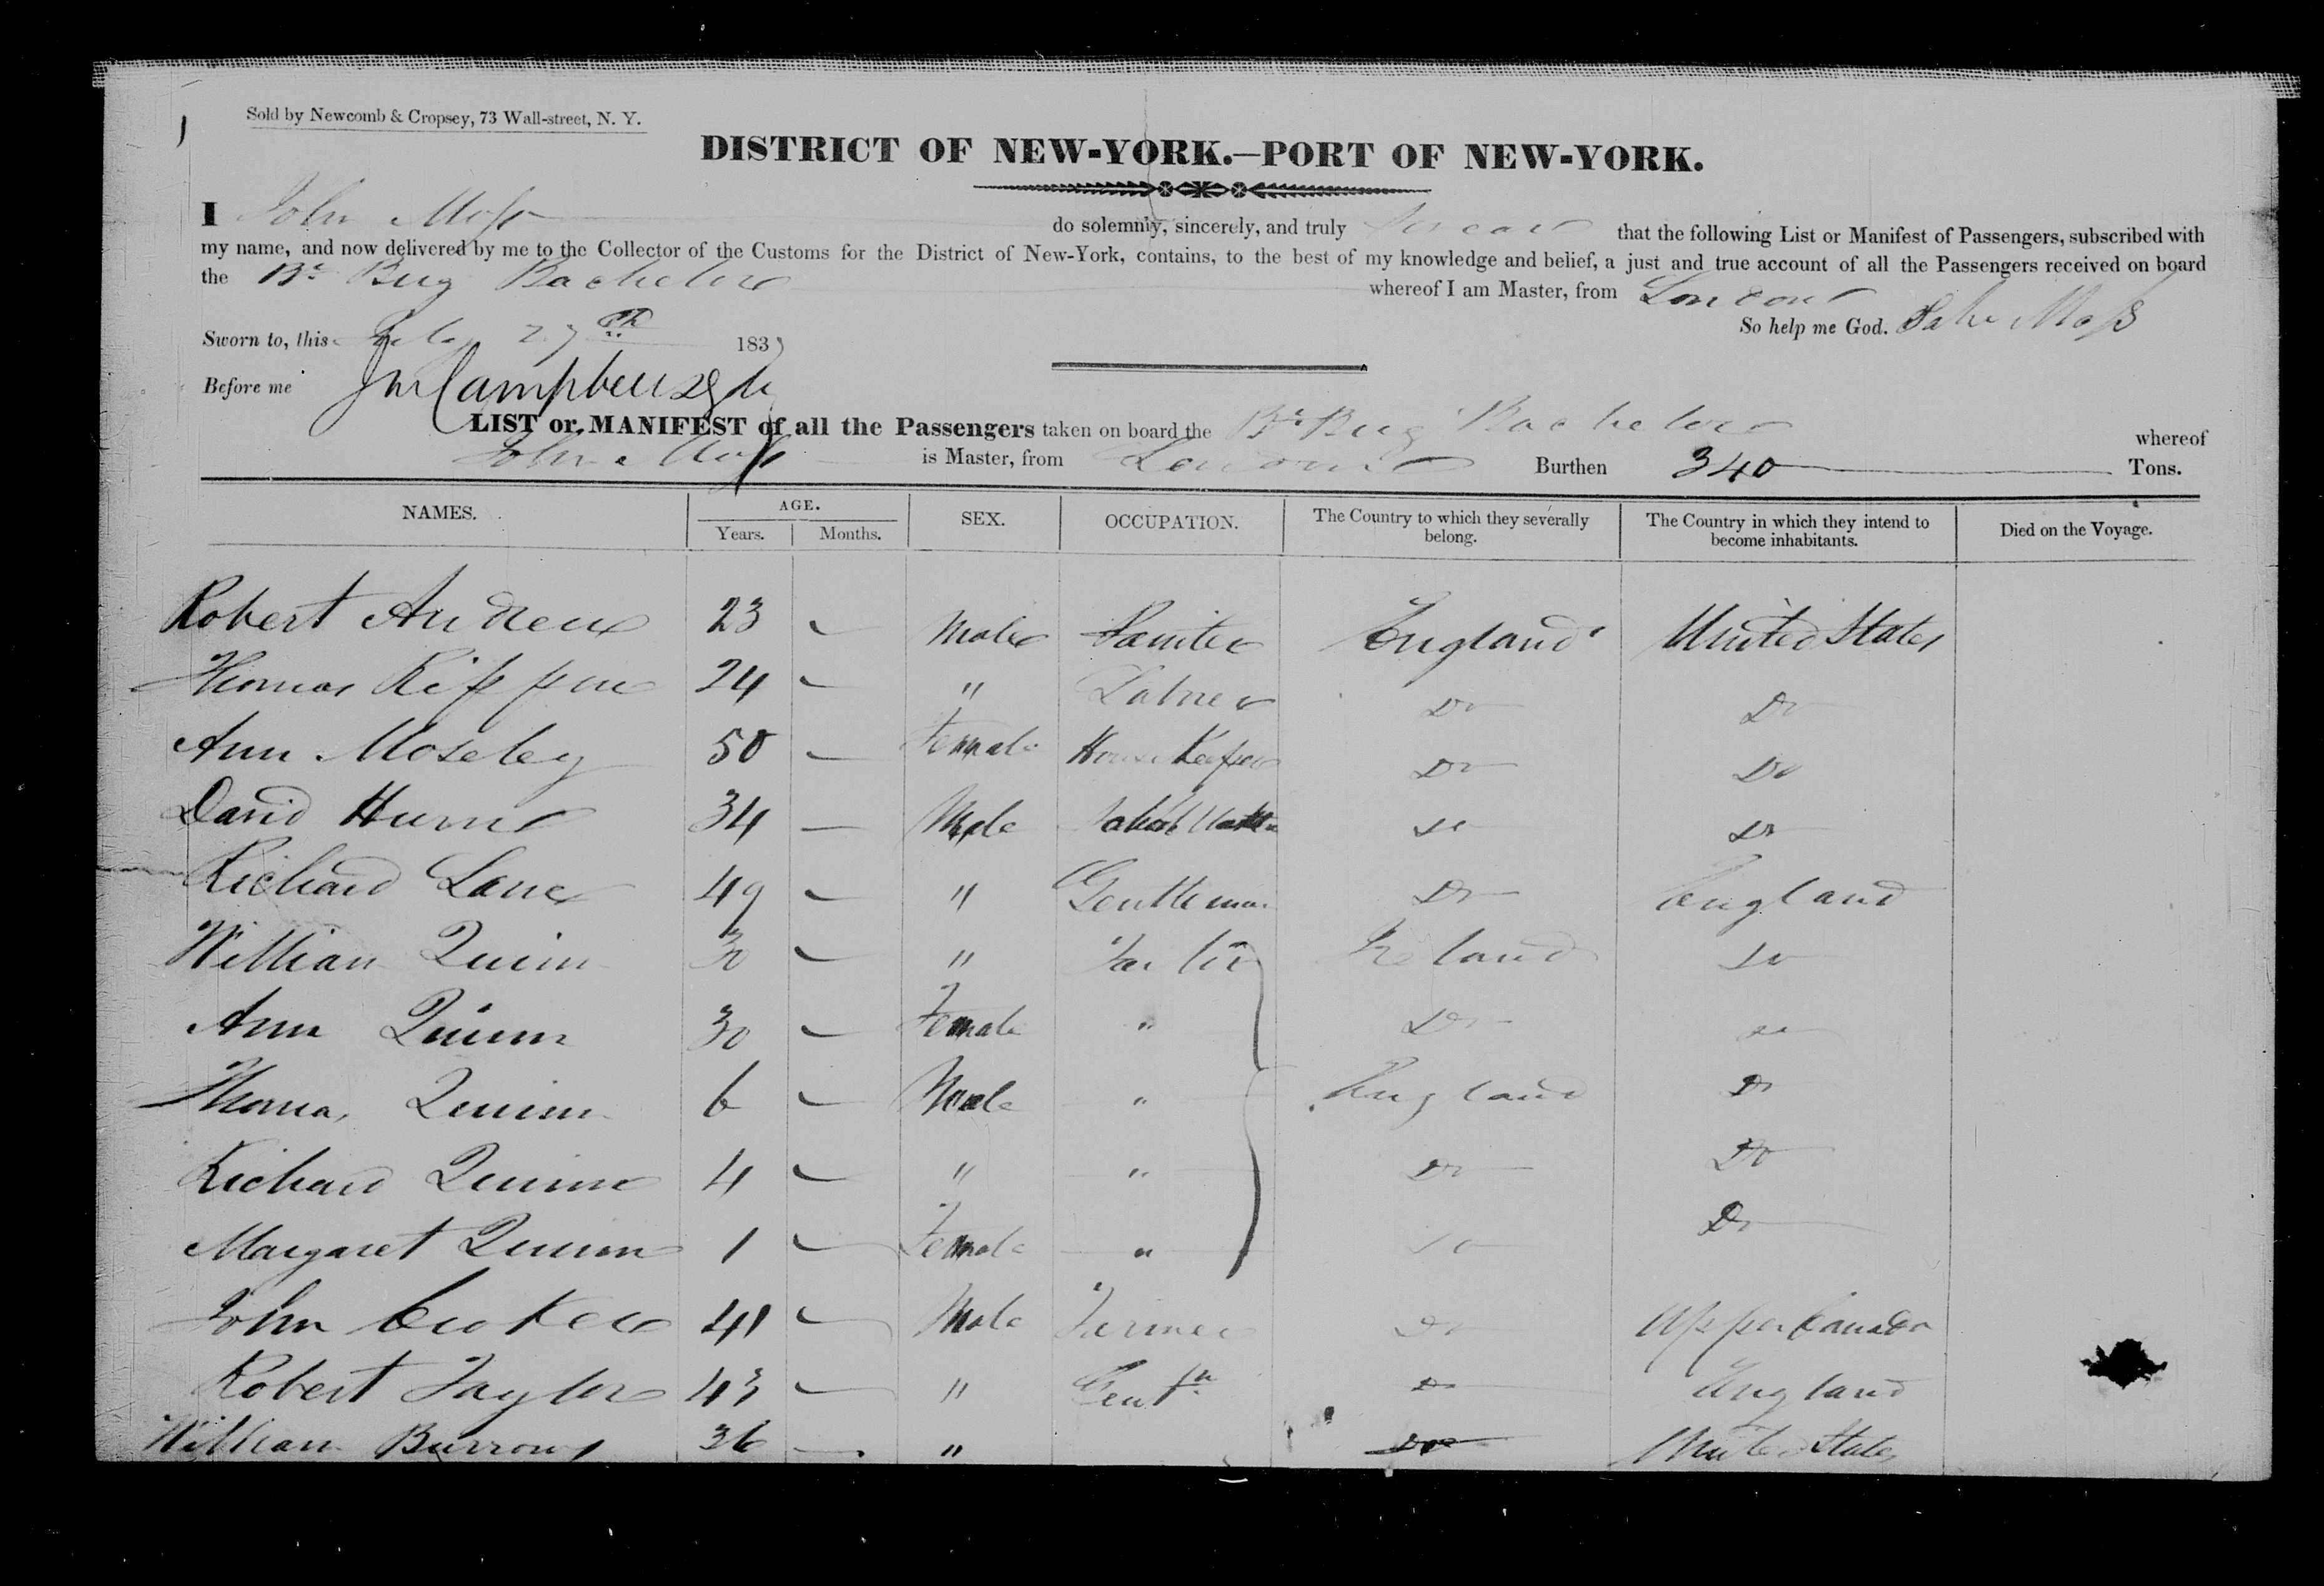 Sold by Newcomb & Cropsey, 73 Wall-street, N. Y.
DISTRICT OF NEW-YORK.—PORT OF NEW-YORK.
I John Moss do solemnly, sincerely, and truly swear that the following List or Manifest of Passengers, subscribed with
my name, and now delivered by me to the Collector of the Customs for the District of New-York, contains, to the best of my knowledge and belief, a just and true account of all the Passengers received on board
the Br Brig Bachelor whereof I am Master, from London
So help me God. John Moss
Sworn to, this July 27th 183
Before me J Campbell
LIST or MANIFEST of all the Passengers taken on board the Br Brig Bachelor whereof
John Moss is Master, from London Burthen 340 Tons.
NAMES. AGE. Years. Months. SEX. OCCUPATION. The Country to which they severally belong. The Country in which they intend to become inhabitants. Died on the Voyage.
Robert Andrew 23 — Male Painter England United States
Thomas Kippen 24 — " Labrer Do Do
Ann Moseley 50 — Female House Keeper Do Do
David Hume 34 — Male Do Do
Richard Lane 49 — " Gentleman Do England
William Quinn 30 — " Ireland Do
Ann Quinn 30 — Female " Do Do
Thomas Quinn 6 — Male " England Do
Richard Quinn 4 — " " Do Do
Margaret Quinn 1 — Female " Do Do
John 41 — Male Farmer Do Upper Canada
Robert Taylor 43 — " Gentn Do England
William Burrows 36 — " Do United States